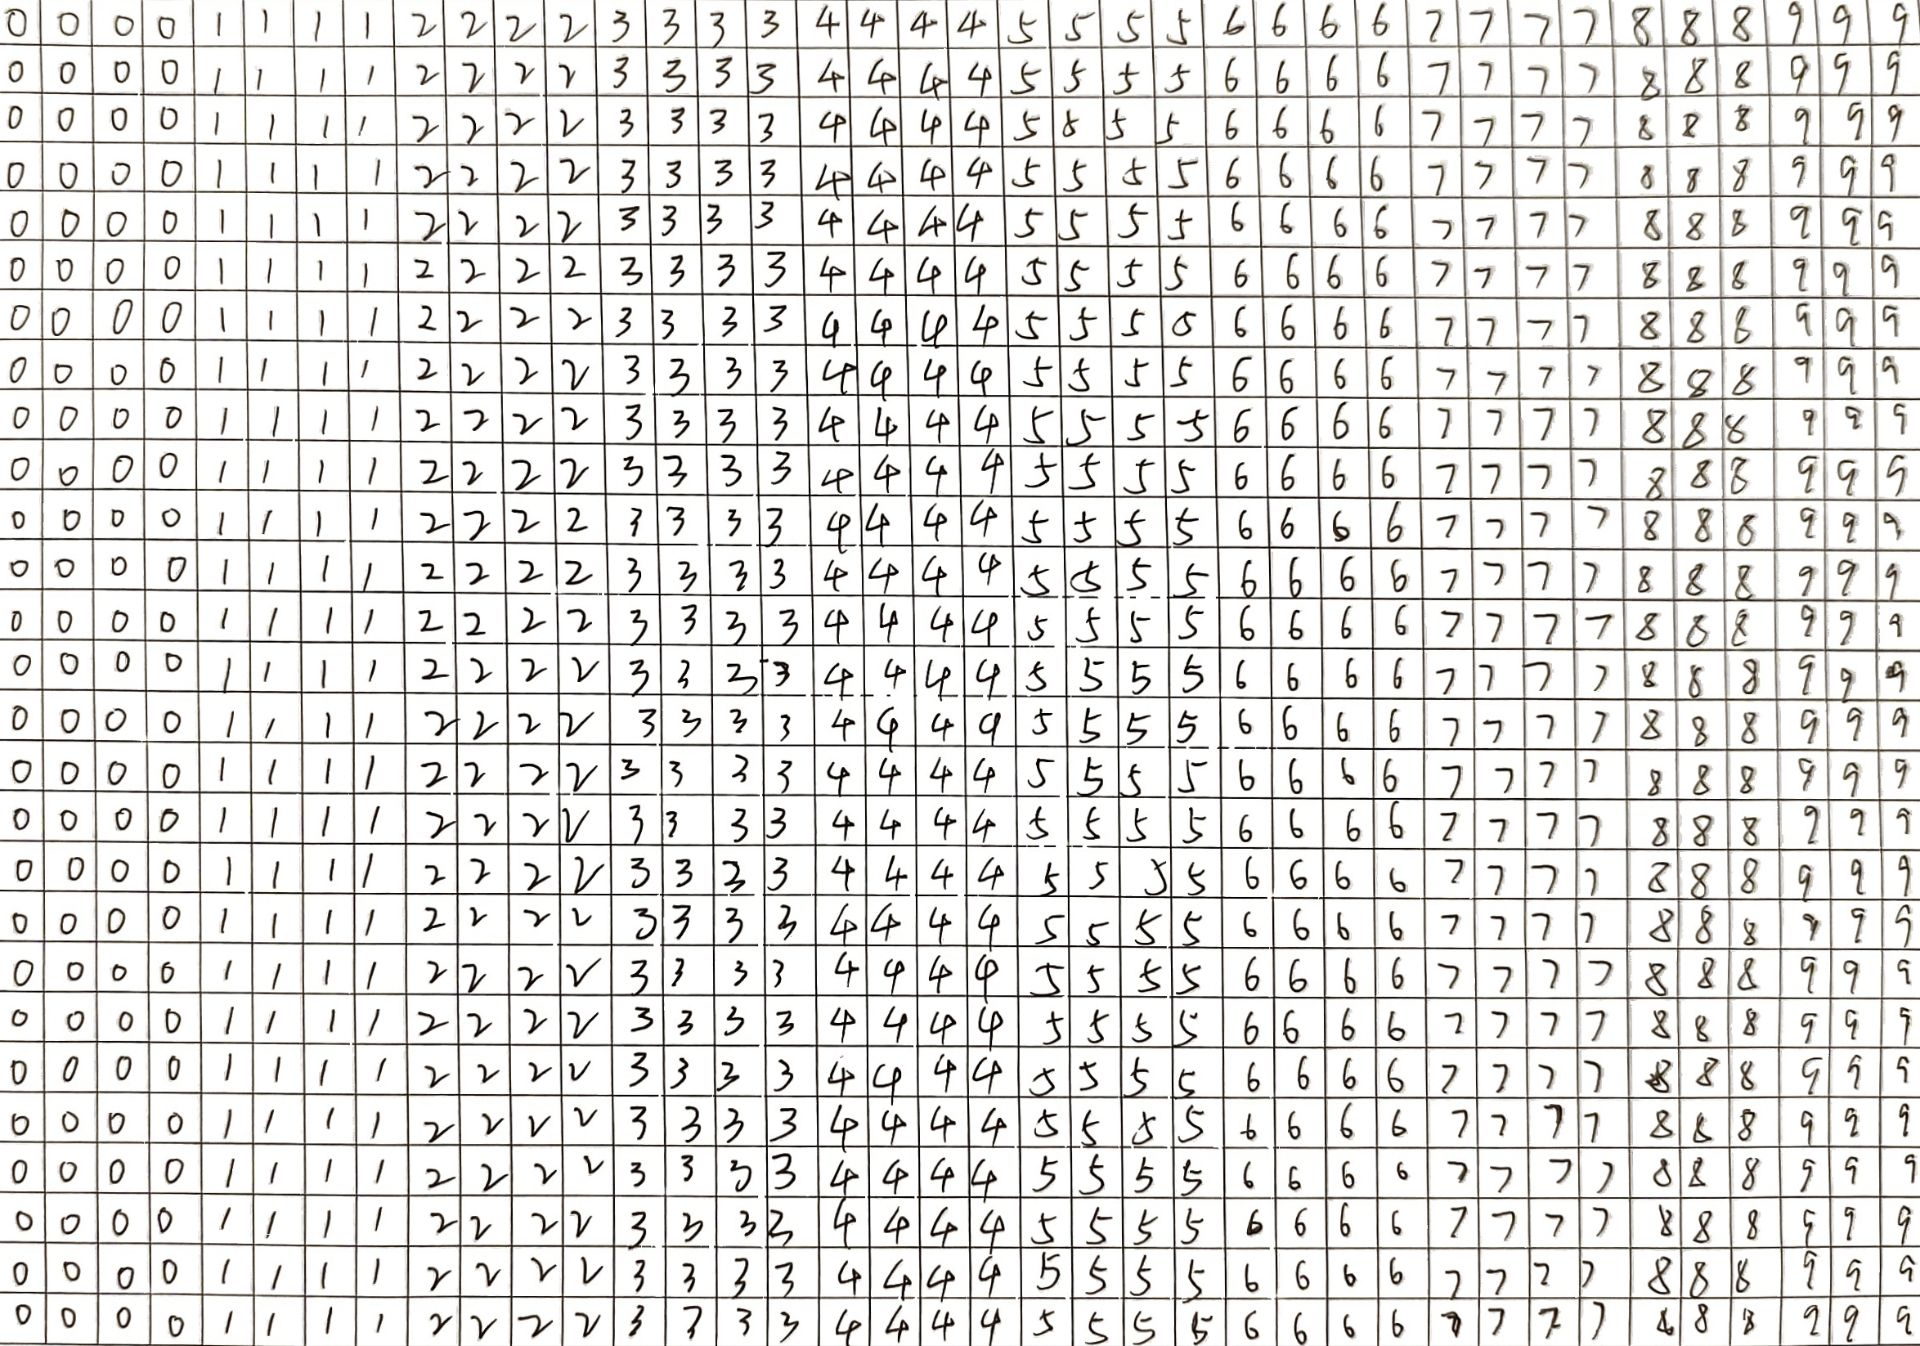 0 0 0 0 1 1 1 1 2 2 2 2 3 3 3 3 4 4 4 4 5 5 5 5 6 6 6 6 7 7 7 7 8 8 8 9 9 9
0 0 0 0 1 1 1 1 2 2 2 2 3 3 3 3 4 4 4 4 5 5 5 5 6 6 6 6 7 7 7 7 8 8 8 9 9 9
0 0 0 0 1 1 1 1 2 2 2 2 3 3 3 3 4 4 4 4 5 8 5 5 6 6 6 6 7 7 7 7 8 8 8 9 9 9
0 0 0 0 1 1 1 1 2 2 2 2 3 3 3 3 4 4 4 4 5 5 5 5 6 6 6 6 7 7 7 7 8 8 8 9 9 9
0 0 0 0 1 1 1 1 2 2 2 2 3 3 3 3 4 4 4 4 5 5 5 5 6 6 6 6 7 7 7 7 8 8 8 9 9 9
0 0 0 0 1 1 1 1 2 2 2 2 3 3 3 3 4 4 4 4 5 5 5 5 6 6 6 6 7 7 7 7 8 8 8 9 9 9
0 0 0 0 1 1 1 1 2 2 2 2 3 3 3 3 4 4 4 4 5 5 5 5 6 6 6 6 7 7 7 7 8 8 8 9 9 9
0 0 0 0 1 1 1 1 2 2 2 2 3 3 3 3 4 4 4 4 5 5 5 5 6 6 6 6 7 7 7 7 8 8 8 9 9 9
0 0 0 0 1 1 1 1 2 2 2 2 3 3 3 3 4 4 4 4 5 5 5 5 6 6 6 6 7 7 7 7 8 8 8 9 9 9
0 0 0 0 1 1 1 1 2 2 2 2 3 3 3 3 4 4 4 4 5 5 5 5 6 6 6 6 7 7 7 7 8 8 8 9 9 9
0 0 0 0 1 1 1 1 2 2 2 2 3 3 3 3 4 4 4 4 5 5 5 5 6 6 6 6 7 7 7 7 8 8 8 9 9 9
0 0 0 0 1 1 1 1 2 2 2 2 3 3 3 3 4 4 4 4 5 5 5 5 6 6 6 6 7 7 7 7 8 8 8 9 9 9
0 0 0 0 1 1 1 1 2 2 2 2 3 3 3 3 4 4 4 4 5 5 5 5 6 6 6 6 7 7 7 7 8 8 8 9 9 9
0 0 0 0 1 1 1 1 2 2 2 2 3 3 3 3 4 4 4 4 5 5 5 5 6 6 6 6 7 7 7 7 8 8 8 9 9 9
0 0 0 0 1 1 1 1 2 2 2 2 3 3 3 3 4 4 4 4 5 5 5 5 6 6 6 6 7 7 7 7 8 8 8 9 9 9
0 0 0 0 1 1 1 1 2 2 2 2 3 3 3 3 4 4 4 4 5 5 5 5 6 6 6 6 7 7 7 7 8 8 8 9 9 9
0 0 0 0 1 1 1 1 2 2 2 2 3 3 3 3 4 4 4 4 5 5 5 5 6 6 6 6 7 7 7 7 8 8 8 9 9 9
0 0 0 0 1 1 1 1 2 2 2 2 3 3 3 3 4 4 4 4 5 5 5 5 6 6 6 6 7 7 7 7 8 8 8 9 9 9
0 0 0 0 1 1 1 1 2 2 2 2 3 3 3 3 4 4 4 4 5 5 5 5 6 6 6 6 7 7 7 7 8 8 8 9 9 9
0 0 0 0 1 1 1 1 2 2 2 2 3 3 3 3 4 4 4 4 5 5 5 5 6 6 6 6 7 7 7 7 8 8 8 9 9 9
0 0 0 0 1 1 1 1 2 2 2 2 3 3 3 3 4 4 4 4 5 5 5 5 6 6 6 6 7 7 7 7 8 8 8 9 9 9
0 0 0 0 1 1 1 1 2 2 2 2 3 3 3 3 4 4 4 4 5 5 5 5 6 6 6 6 7 7 7 7 8 8 8 9 9 9
0 0 0 0 1 1 1 1 2 2 2 2 3 3 3 3 4 4 4 4 5 5 5 5 6 6 6 6 7 7 7 7 8 8 8 9 9 9
0 0 0 0 1 1 1 1 2 2 2 2 3 3 3 3 4 4 4 4 5 5 5 5 6 6 6 6 7 7 7 7 8 8 8 9 9 9
0 0 0 0 1 1 1 1 2 2 2 2 3 3 3 3 4 4 4 4 5 5 5 5 6 6 6 6 7 7 7 7 8 8 8 9 9 9
0 0 0 0 1 1 1 1 2 2 2 2 3 3 3 3 4 4 4 4 5 5 5 5 6 6 6 6 7 7 7 7 8 8 8 9 9 9
0 0 0 0 1 1 1 1 2 2 2 2 3 3 3 3 4 4 4 4 5 5 5 5 6 6 6 6 7 7 7 7 8 8 8 9 9 9